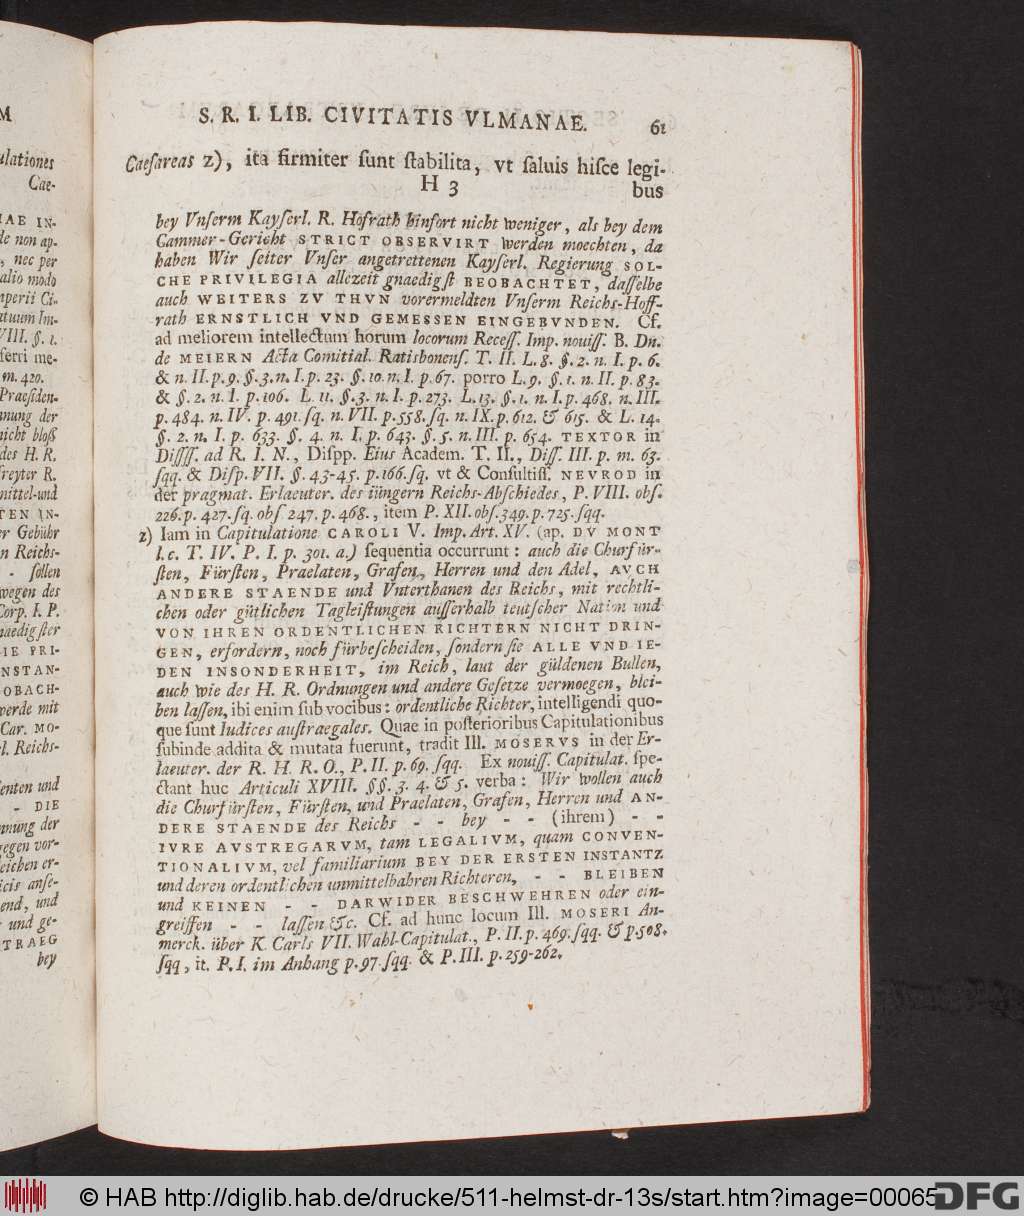 M
ulationes
Cae-
IAE IN-
de non ap-
, nec per
alio modo
mperii Ci-
atuum Im-
VIII. §. 1.
ferri me-
m. 420.
Praesiden-
nung der
nicht bloß
des H. R.
freyter R.
mittel-und
TEN IN-
er Gebühr
n Reichs-
- ſollen
wegen des
Corp. I. P.
naedigſter
IE PRI-
NSTAN-
OBACH-
werde mit
Car. MO-
l. Reichs-
ſenten und
- DIE
nnung der
gegen vor-
leichen er-
icis anſe-
end, und
und ge-
TRAEG
bey
S. R. I. LIB. CIVITATIS VLMANAE. 61
Caeſareas z), ita firmiter ſunt ſtabilita, vt ſaluis hiſce legi-
H 3 bus
bey Vnſerm Kayſerl. R. Hofrath hinfort nicht weniger, als bey dem
Cammer-Gericht STRICT OBSERVIRT werden moechten, da
haben Wir ſeiter Vnſer angetrettenen Kayſerl. Regierung SOL-
CHE PRIVILEGIA allezeit gnaedigſt BEOBACHTET, daſſelbe
auch WEITERS ZV THVN vorermeldten Vnſerm Reichs-Hoff-
rath ERNSTLICH VND GEMESSEN EINGEBVNDEN. Cf.
ad meliorem intellectum horum locorum Receſſ. Imp. nouiſſ. B. Dn.
de MEIERN Acta Comitial. Ratisbonenſ. T. II. L. 8. §. 2. n. I. p. 6.
& n. II. p. 9. §. 3. n. I. p. 23. §. 10. n. I. p. 67. porro L. 9. §. 1. n. II. p. 83.
& §. 2. n. I. p. 106. L. 11. §. 3. n. I. p. 273. L. 13. §. 1. n. I. p. 468. n. III.
p. 484. n. IV. p. 491. ſq. n. VII. p. 558. ſq. n. IX. p. 612. & 615. & L. 14.
§. 2. n. I. p. 633. §. 4. n. I. p. 643. §. 5. n. III. p. 654. TEXTOR in
Diſſſſ. ad R. I. N., Diſpp. Eius Academ. T. II., Diſſ. III. p. m. 63.
ſqq. & Diſp. VII. §. 43-45. p. 166. ſq. vt & Conſultiſſ. NEVROD in
der pragmat. Erlaeuter. des iüngern Reichs-Abſchiedes, P. VIII. obſ.
226. p. 427. ſq. obſ 247. p. 468., item P. XII. obſ. 349. p. 725. ſqq.
z) Iam in Capitulatione CAROLI V. Imp. Art. XV. (ap. DV MONT
l. c. T. IV. P. I. p. 301. a.) ſequentia occurrunt: auch die Churfür-
ſten, Fürſten, Praelaten, Grafen, Herren und den Adel, AVCH
ANDERE STAENDE und Vnterthanen des Reichs, mit rechtli-
chen oder gütlichen Tagleiſtungen auſſerhalb teutſcher Nation und
VON IHREN ORDENTLICHEN RICHTERN NICHT DRIN-
GEN, erfordern, noch fürbeſcheiden, ſondern ſie ALLE VND IE-
DEN INSONDERHEIT, im Reich, laut der güldenen Bullen,
auch wie des H. R. Ordnungen und andere Geſetze vermoegen, blei-
ben laſſen, ibi enim ſub vocibus: ordentliche Richter, intelligendi quo-
que ſunt Iudices auſtraegales. Quae in poſterioribus Capitulationibus
ſubinde addita & mutata fuerunt, tradit Ill. MOSERVS in der Er-
laeuter. der R. H. R. O., P. II. p. 69. ſqq. Ex nouiſſ. Capitulat. ſpe-
ctant huc Articuli XVIII. §§. 3. 4. & 5. verba: Wir wollen auch
die Churfürſten, Fürſten, und Praelaten, Grafen, Herren und AN-
DERE STAENDE des Reichs - - bey - - (ihrem) - -
IVRE AVSTREGARVM, tam LEGALIVM, quam CONVEN-
TIONALIVM, vel familiarium BEY DER ERSTEN INSTANTZ
und deren ordentlichen unmittelbahren Richteren, - - BLEIBEN
und KEINEN - - DARWIDER BESCHWEHREN oder ein-
greiffen - - laſſen &c. Cf. ad hunc locum Ill. MOSERI An-
merck. über K. Carls VII. Wahl-Capitulat., P. II. p. 469. ſqq. & p. 508.
ſqq, it. P. I. im Anhang p. 97. ſqq. & P. III. p. 259-262.
© HAB http://diglib.hab.de/drucke/511-helmst-dr-13s/start.htm?image=00065
DFG